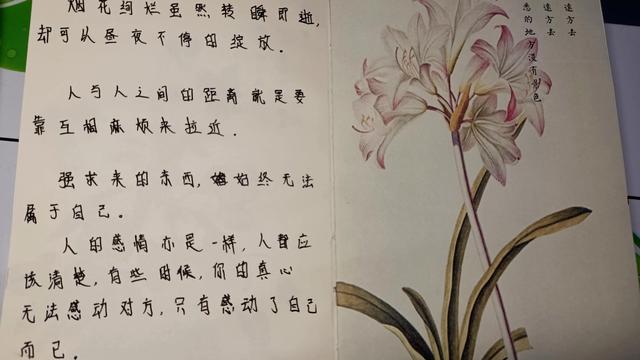 烟花绚烂虽然转瞬即逝,
却可以昼夜不停的绽放。
人与人之间的距离就是要
靠互相麻烦来拉近.
强求来的东西,始终无法
属于自己。
人的感情亦是一样,人都应
该清楚,有些时候,你的真心
无法感动对方,只有感动了自己
而已。
远方去
远方去
悉的地方没有景色